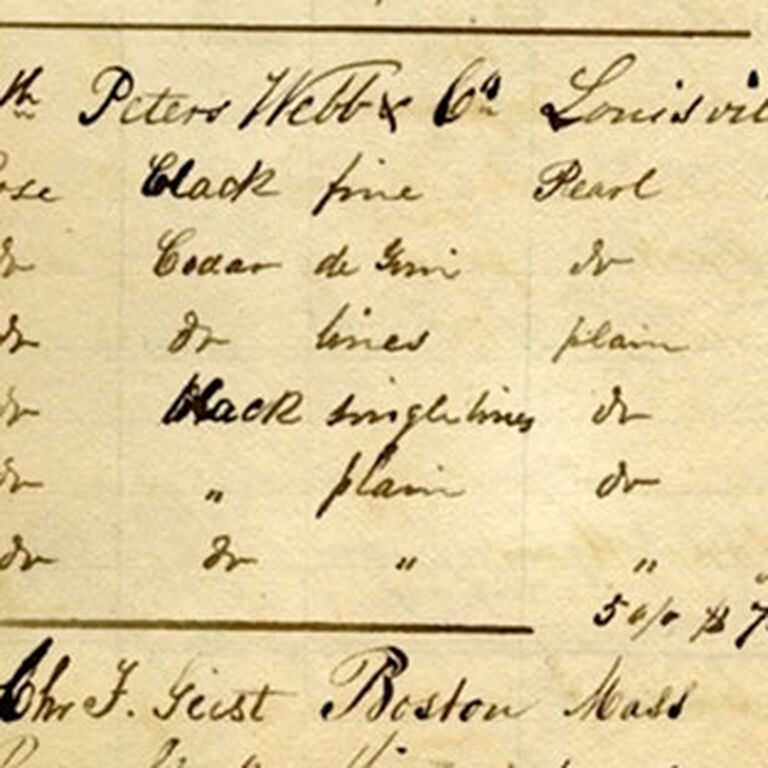 Peters Webb & Co Louisvil
ose Black fine Pearl
do Cedar de Grin do
do do lines plain
do black single lines do
do " plain do
do do " "
5 o/o $ 7
Chr F. Geist Boston Mass